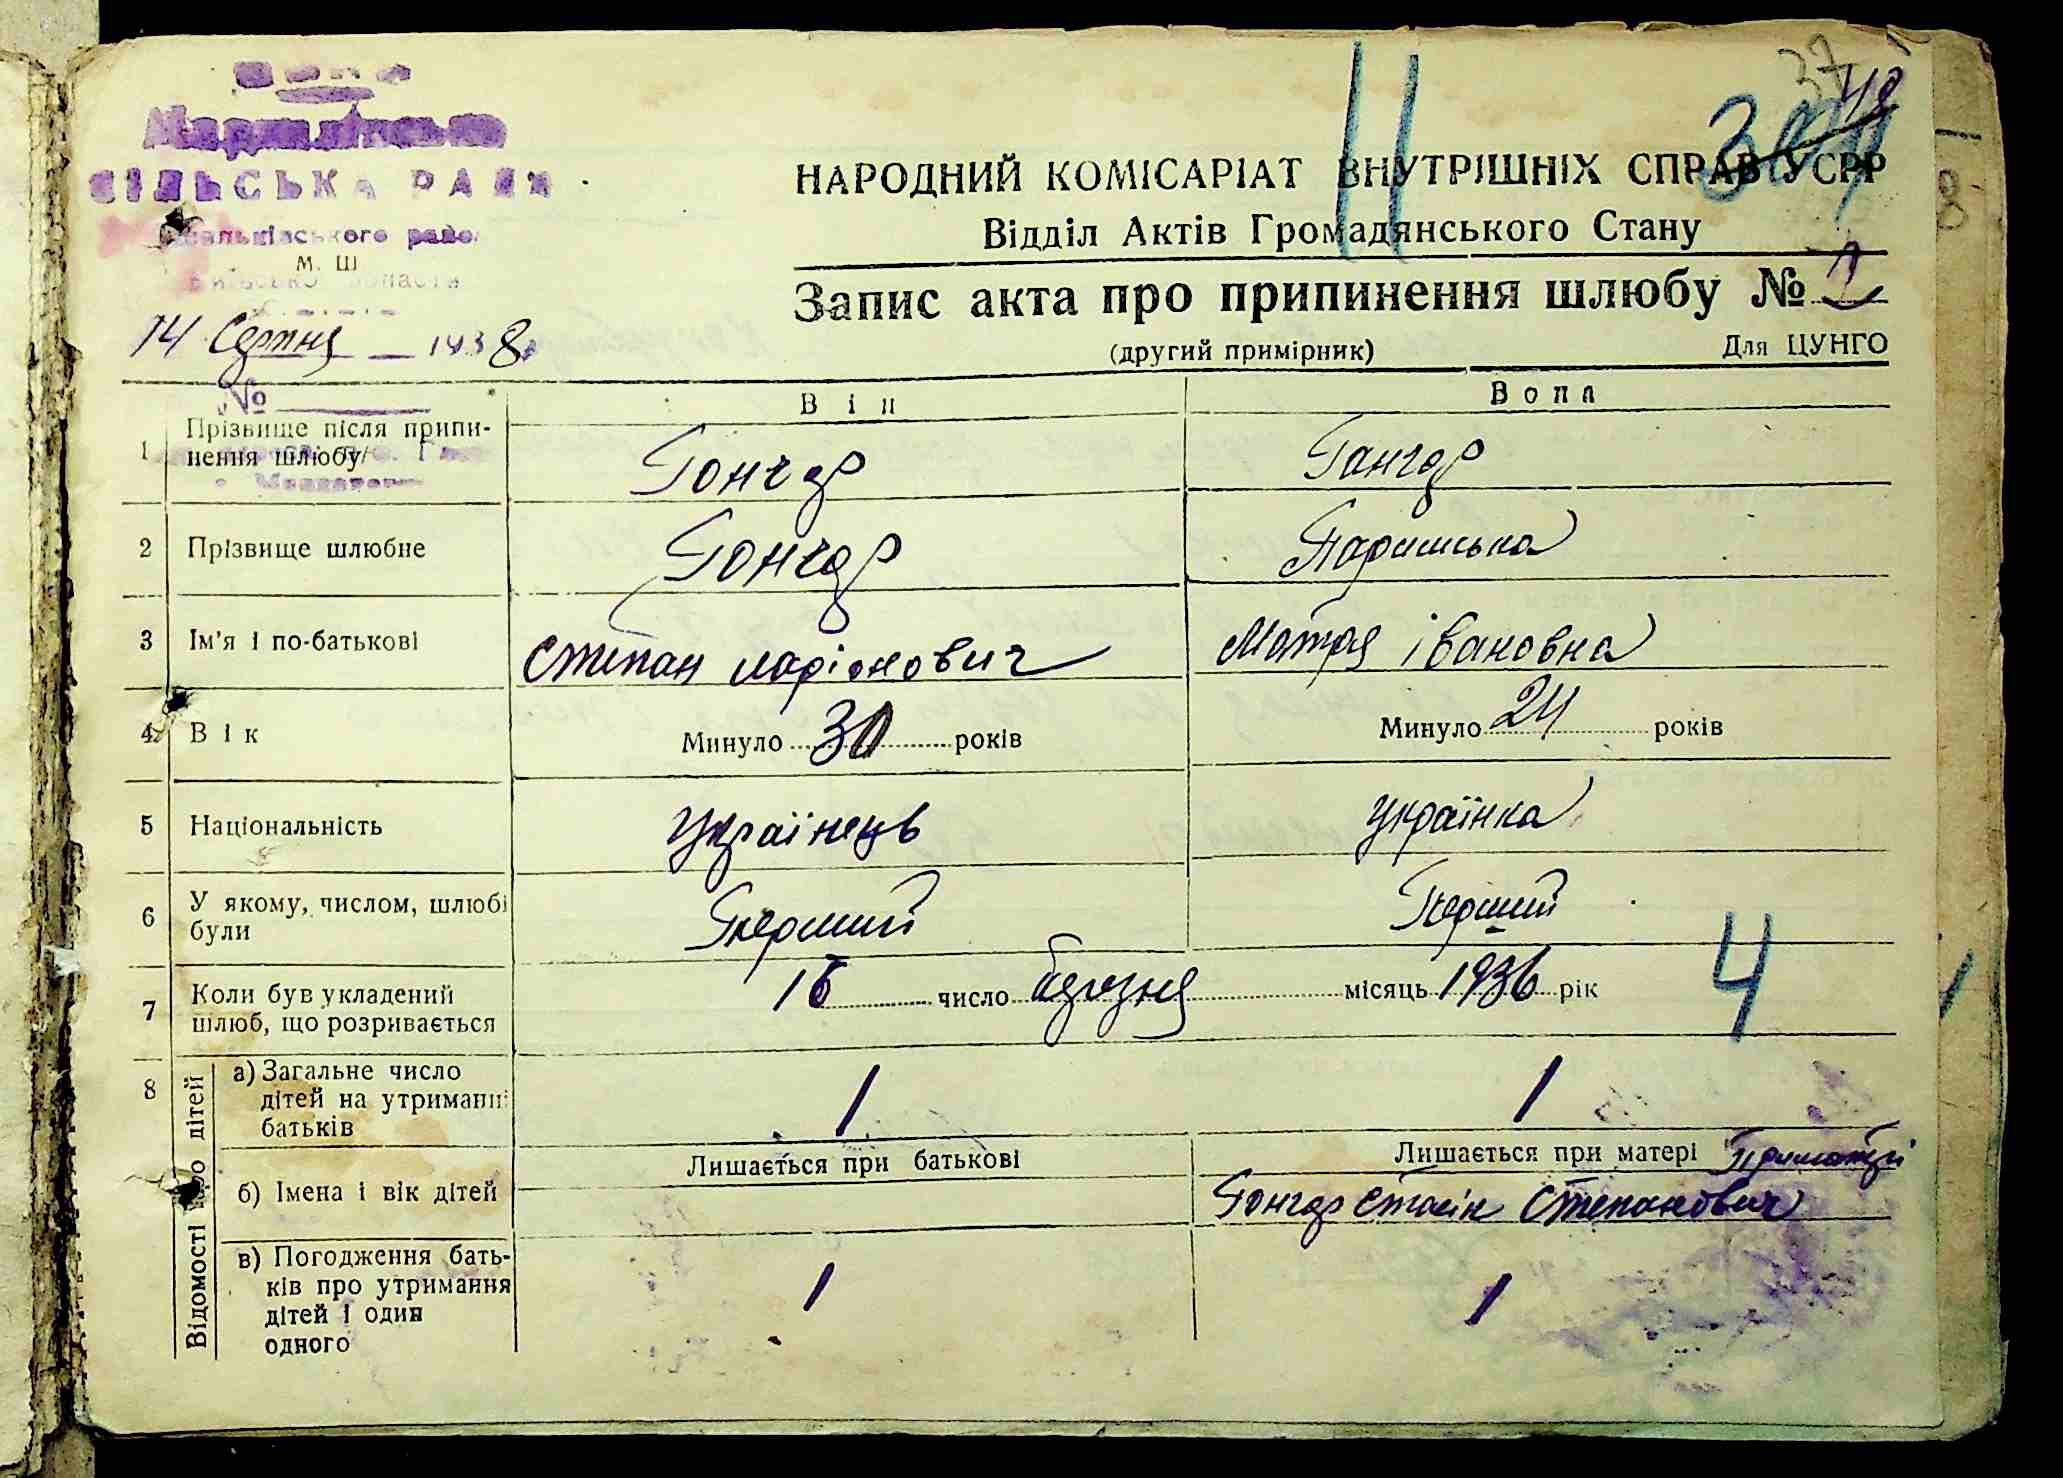 СІЛЬСЬКА РАДА
37
42
11
НАРОДНИЙ КОМІСАРІАТ ВНУТРІШНІХ СПРАВ УСРР
Відділ Актів Громадянського Стану
Запис акта про припинення шлюбу №
14 Серпня 1938
(другий примірник)
Для ЦУНГО
№
Він
Вона
1 Прізвище після припинення шлюбу
Гончар
Гончар
2 Прізвище шлюбне
Гончар
3 Ім'я і по-батькові
Степан Ларіонович
Мотря Івановна
4 Вік
Минуло 30 років
Минуло 24 років
5 Національність
Українець
Українка
6 У якому, числом, шлюбі були
Перший
Перший
7 Коли був укладений шлюб, що розривається
16 число березня місяць 1936 рік
4
8 Відомості про дітей
а) Загальне число дітей на утриманні батьків
1
1
Лишається при батькові
Лишається при матері Приматері
б) Імена і вік дітей
Гончар Сталін Степанович
в) Погодження батьків про утримання дітей і один одного
1
1